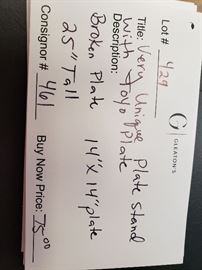 GLEATON'S
Lot # 429
Title: Very Unique Plate Stand
With Toyo Plate
Description:
Broken Plate 14"x14" plate
25" Tall
Consignor # 461 Buy Now Price: 75.00